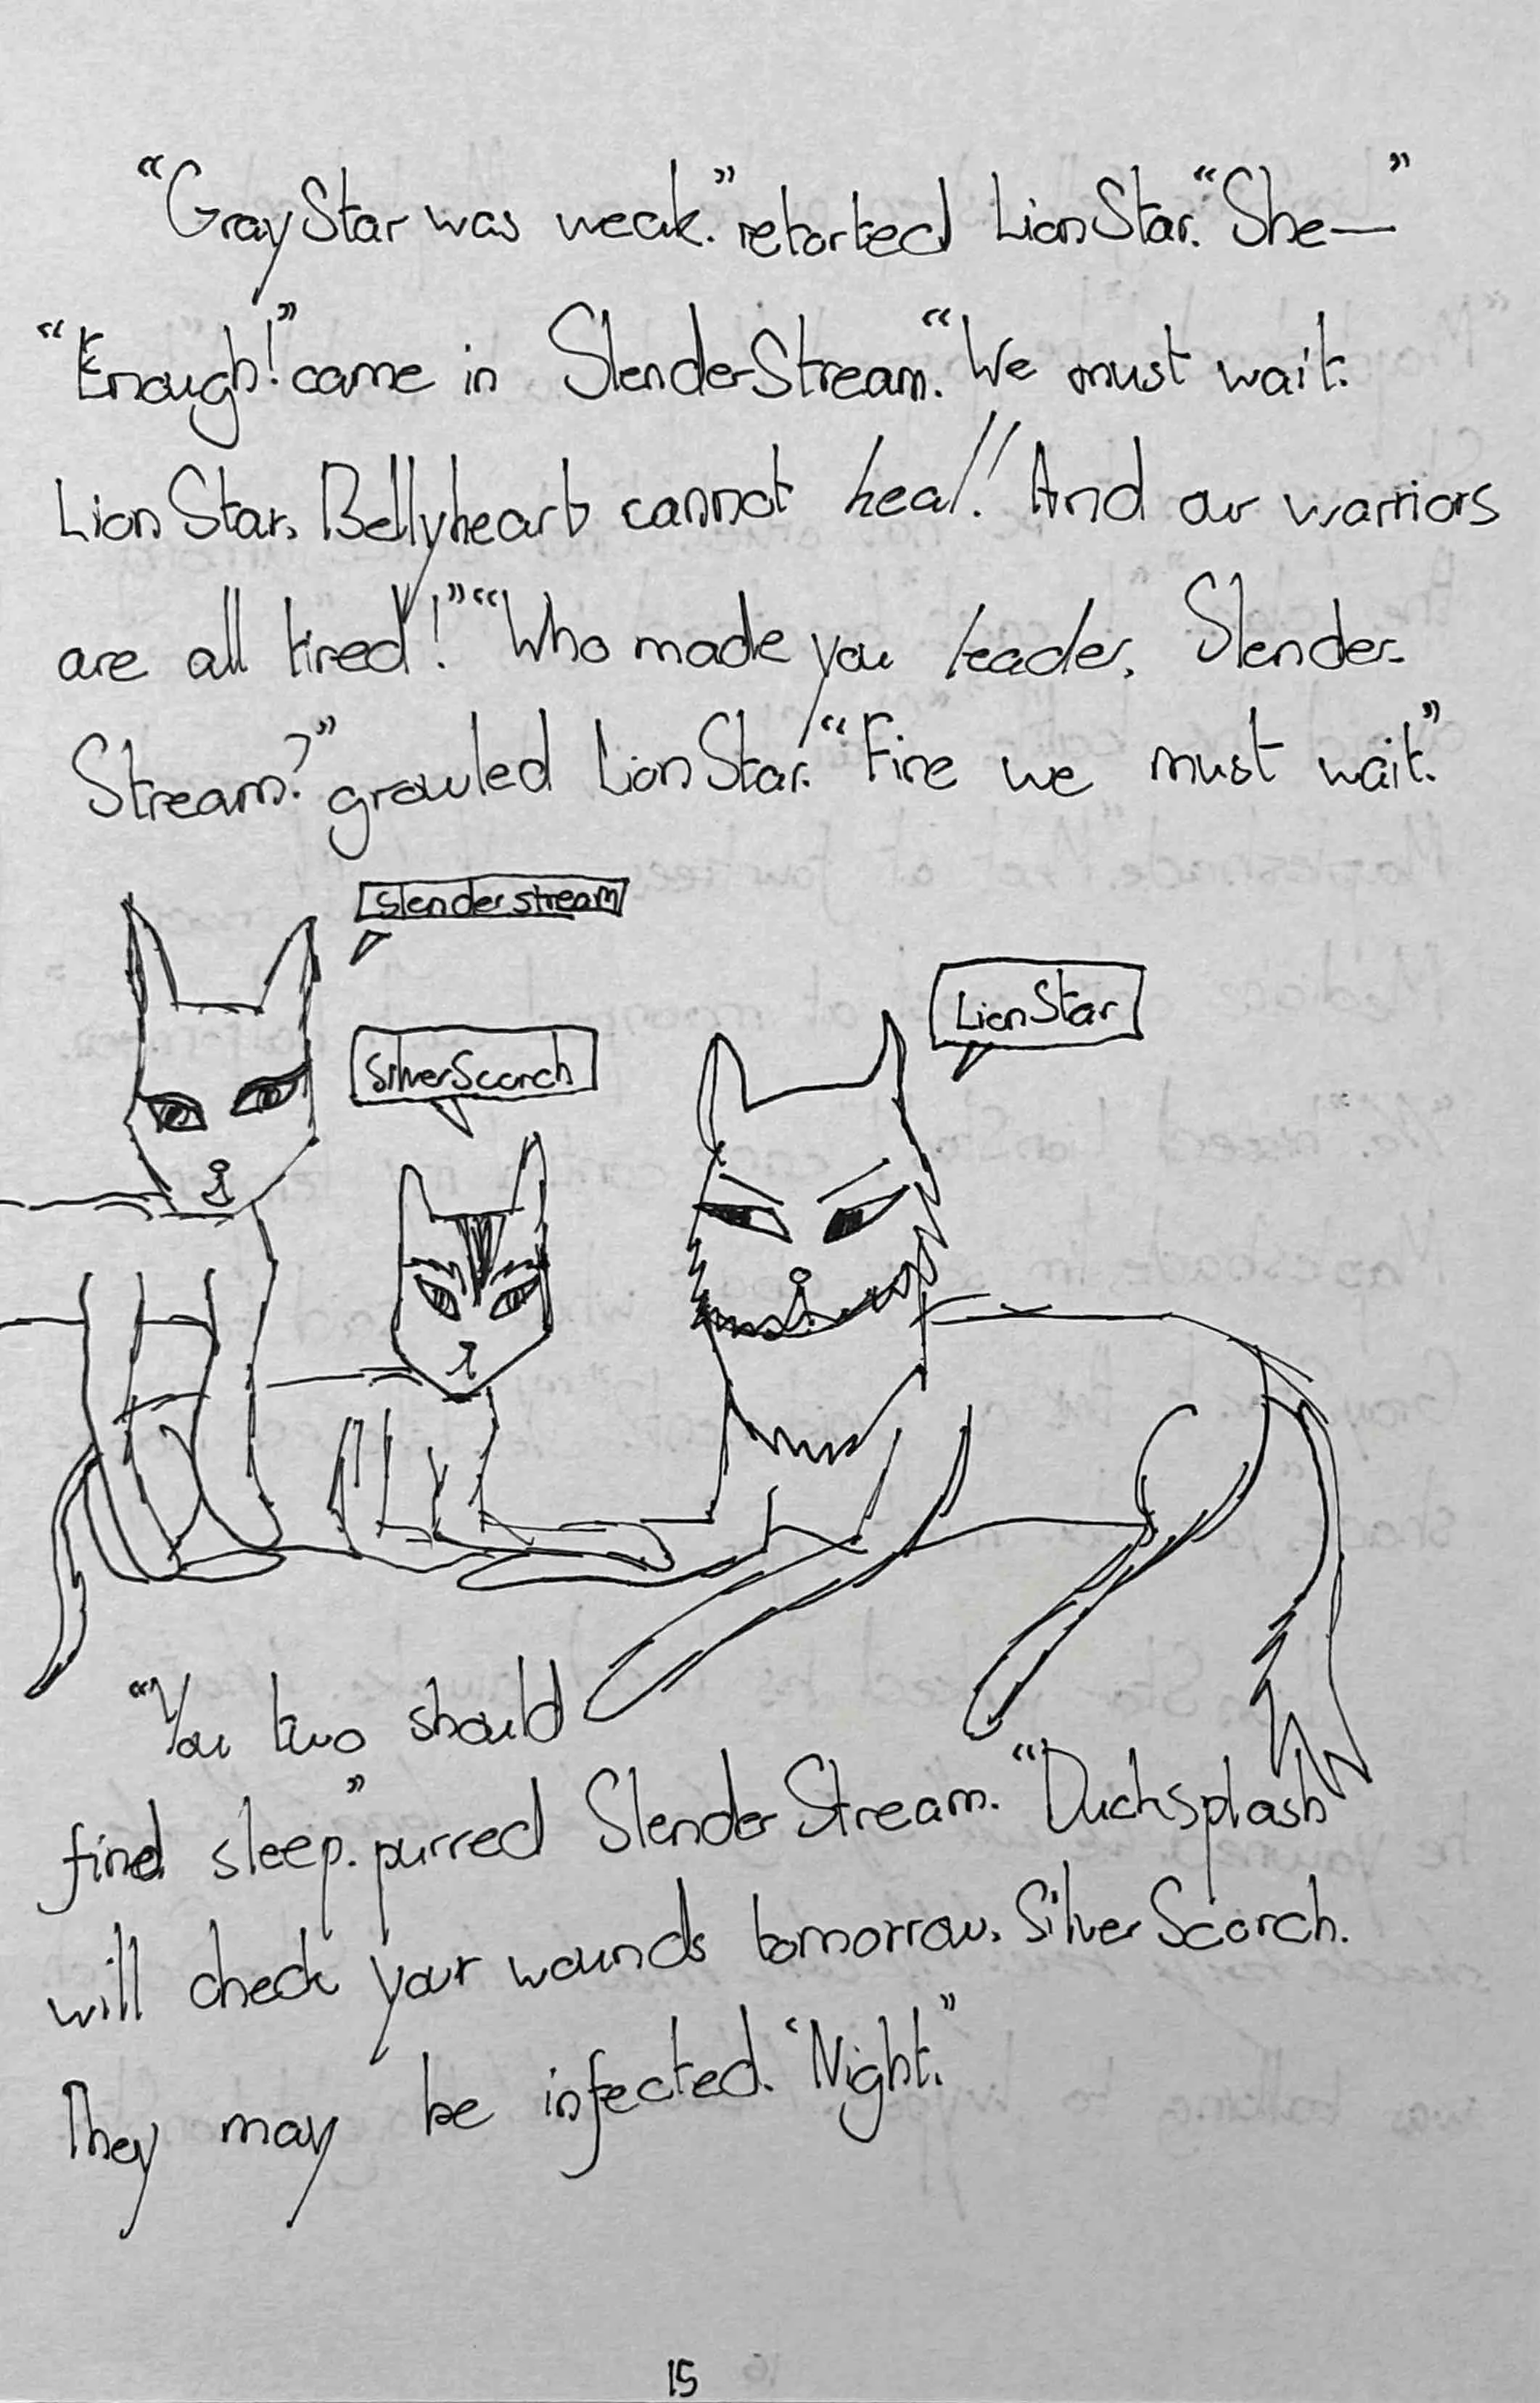 “GrayStar was weak.” retorted LionStar. “She—”
“Enough!” came in SlenderStream. “We must wait.
LionStar, Bellyheart cannot heal!! And our warriors
are all tired!” “Who made you leader, Slender-
Stream?” growled LionStar. “Fine we must wait.”
Slenderstream
LionStar
SilverScorch
“You two should
find sleep.” purred SlenderStream. “Ducksplash
will check your wounds tomorrow, SilverScorch.
They may be infected. ‘Night.”
15